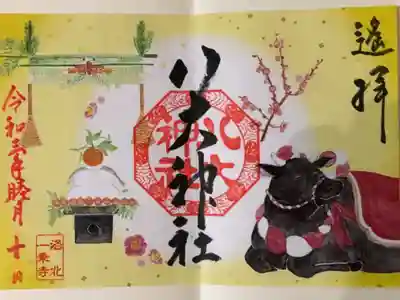 遙拝
八大神社
八大
神社
令和三年睦月十日
洛北
一乗寺